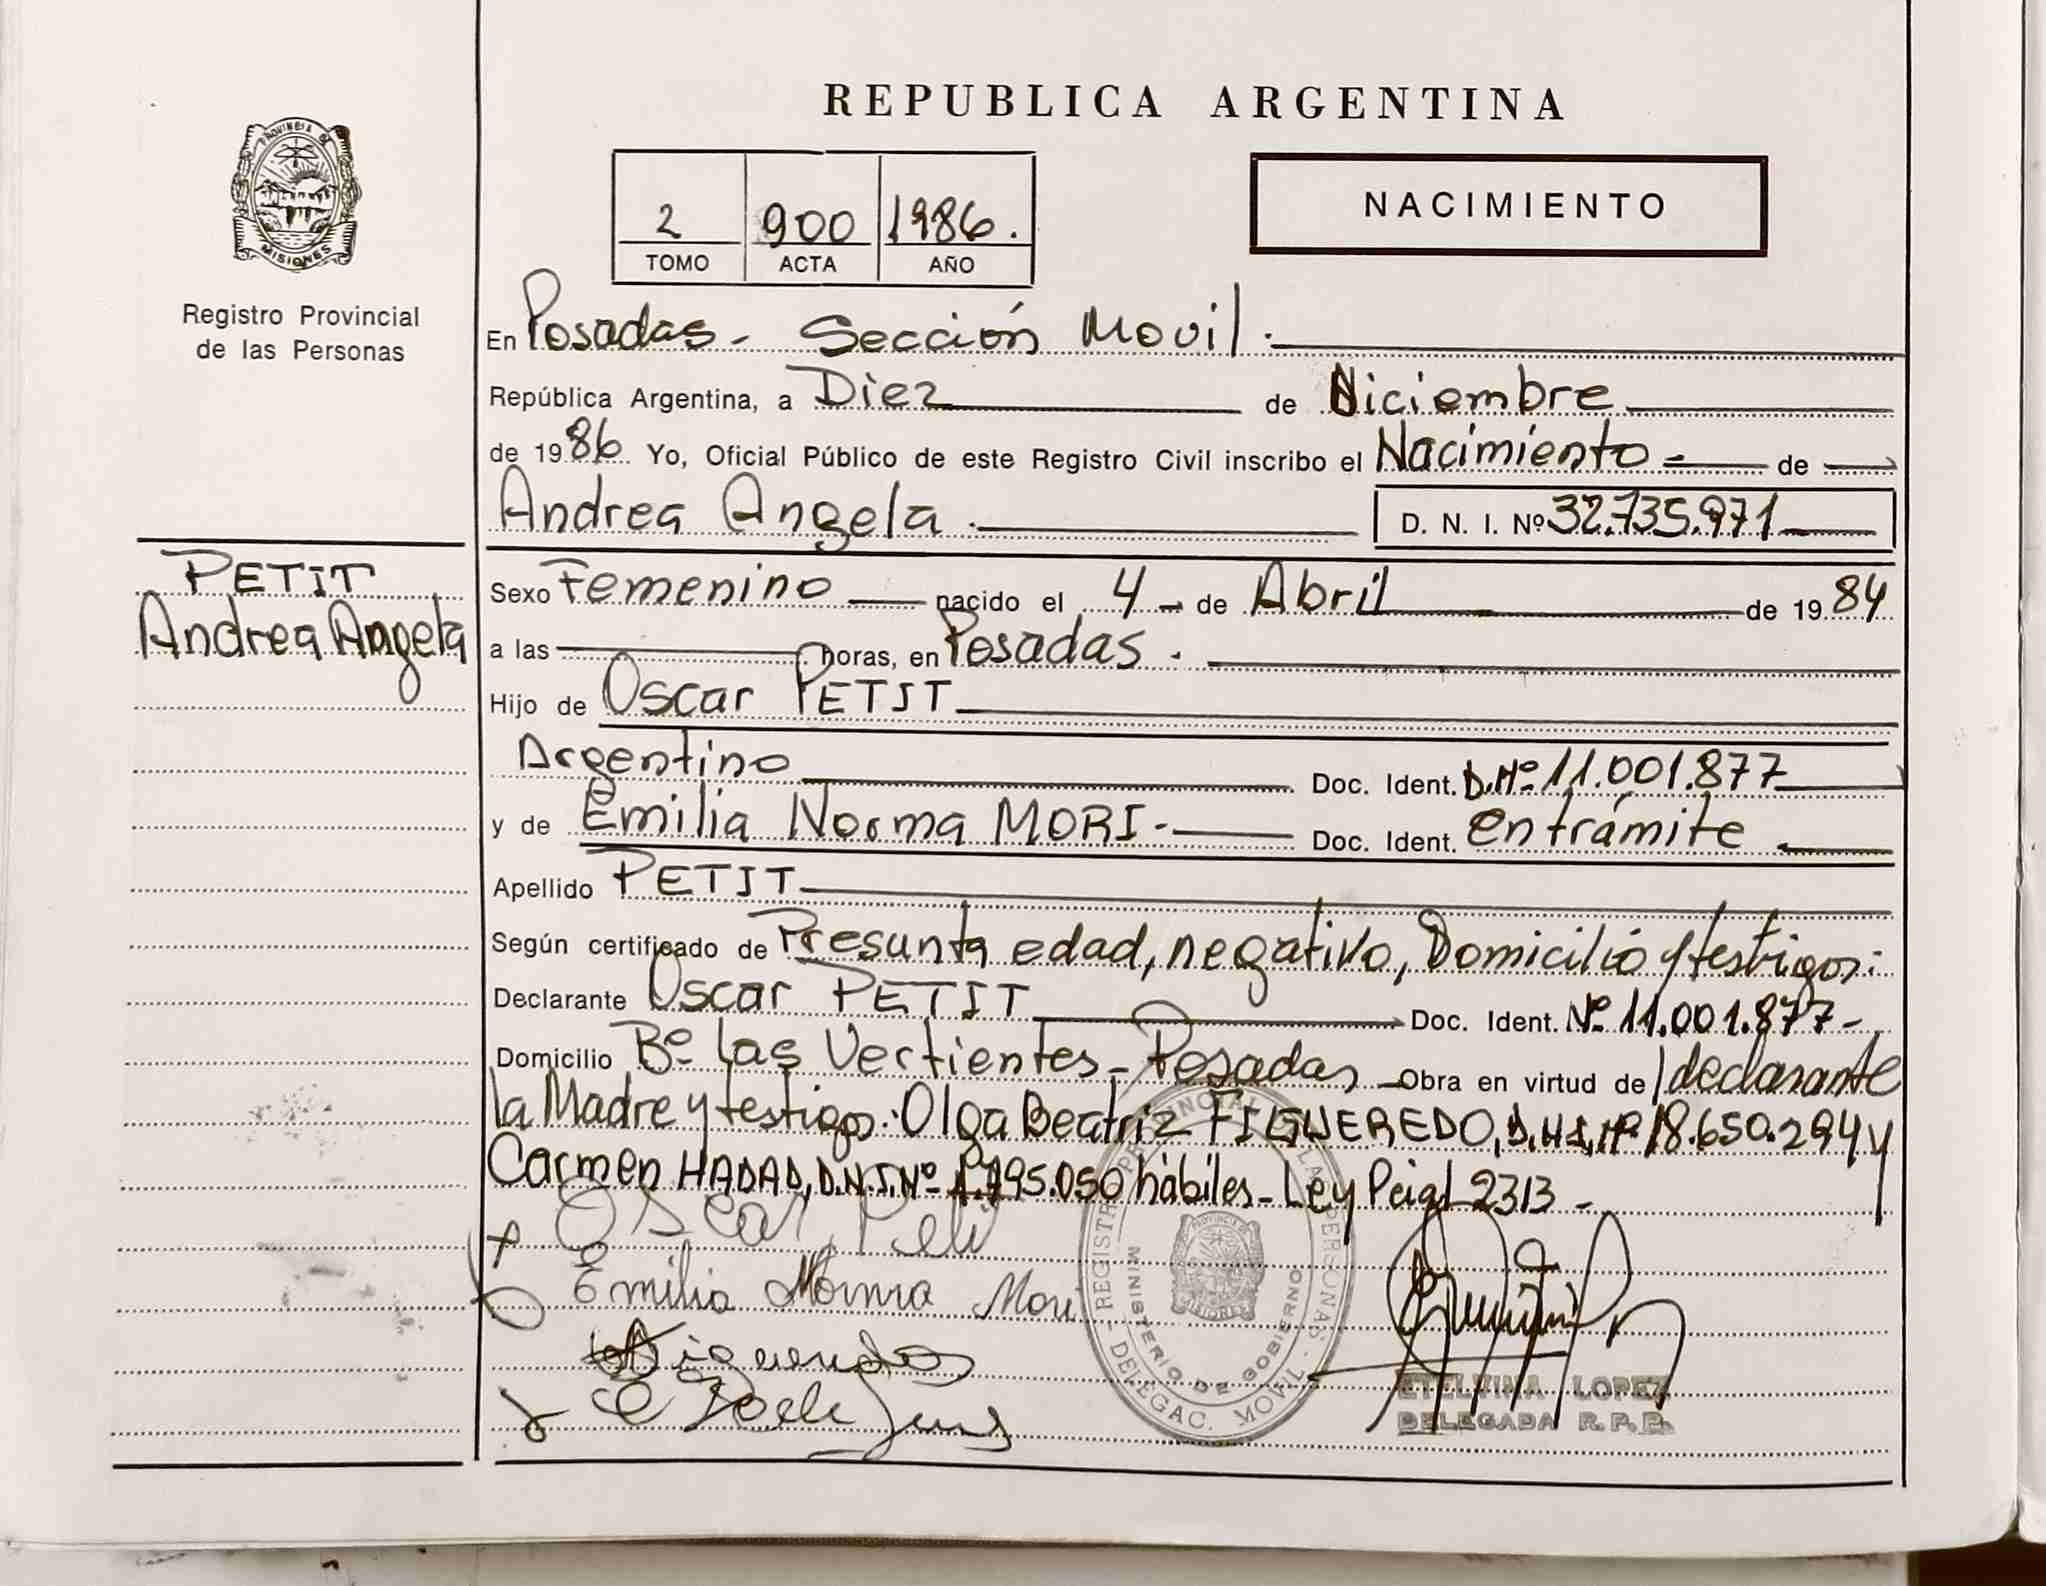 REPUBLICA ARGENTINA
PROVINCIA DE
MISIONES
Registro Provincial
de las Personas
2 900 1986.
TOMO ACTA AÑO
NACIMIENTO
En Posadas - Sección Movil.
República Argentina, a Diez de Diciembre
de 1986 Yo, Oficial Público de este Registro Civil inscribo el Nacimiento - de
Andrea Angela. D. N. I. Nº 32.735.971
PETIT
Andrea Angela
Sexo Femenino nacido el 4 - de Abril de 1984
a las horas, en Posadas.
Hijo de Oscar PETIT
Argentino Doc. Ident. D.Nº 11.001.877
y de Emilia Norma MORI - Doc. Ident. en trámite
Apellido PETIT
Según certificado de Presunta edad, negativo, Domicilio y testigos:
Declarante Oscar PETIT Doc. Ident. Nº 11.001.877-
Domicilio Bº Las Vertientes - Posadas Obra en virtud de declarante
la Madre y testigos: Olga Beatriz FIGUEREDO, D.N.I. Nº 18.650.294 y
Carmen HADAD, D.N.I. Nº hábiles - Ley 2313 -
Oscar Peti
Emilia Norma Mori
REGISTRO PROVINCIAL DE LAS PERSONAS - DELEGAC. MOVIL -
MINISTERIO DE GOBIERNO
ETELVINA LOPEZ
DELEGADA R.P.P.